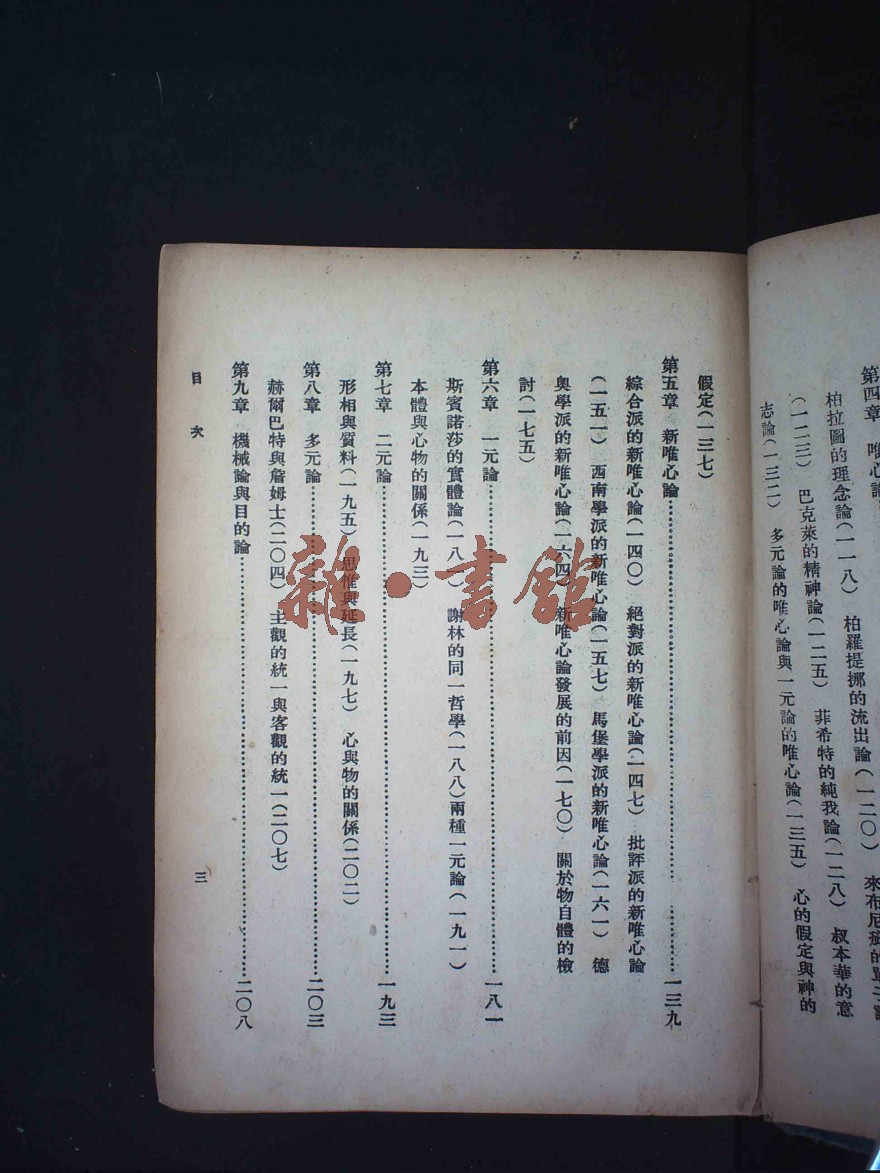 第四章　唯心論
柏拉圖的理念論(一一八)　柏羅提挪的流出論(一二〇)　來布尼茲的單子論
(一二三)　巴克萊的精神論(一二五)　菲希特的純我論(一二八)　叔本華的意
志論(一三二)　多元論的唯心論與一元論的唯心論(一三五)　心的假定與神的
假定(一三七)
第五章　新唯心論……一三九
綜合派的新唯心論(一四〇)　絕對派的新唯心論(一四七)　批評派的新唯心論
(一五一)　西南學派的新唯心論(一五七)　馬堡學派的新唯心論(一六一)　德
奧學派的新唯心論(一六四)　新唯心論發展的前因(一七〇)　關於物自體的檢
討(一七五)
第六章　一元論……一八一
斯賓諾莎的實體論(一八一)　謝林的同一哲學(一八八)兩種一元論(一九一)
本體與心物的關係(一九三)
第七章　二元論……一九三
形相與質料(一九五)　思惟與延長(一九七)　心與物的關係(二〇二)
第八章　多元論……二〇三
赫爾巴特與詹姆士(二〇四)　主觀的統一與客觀的統一(二〇七)
第九章　機械論與目的論……二〇八
目次
三
雜·書館